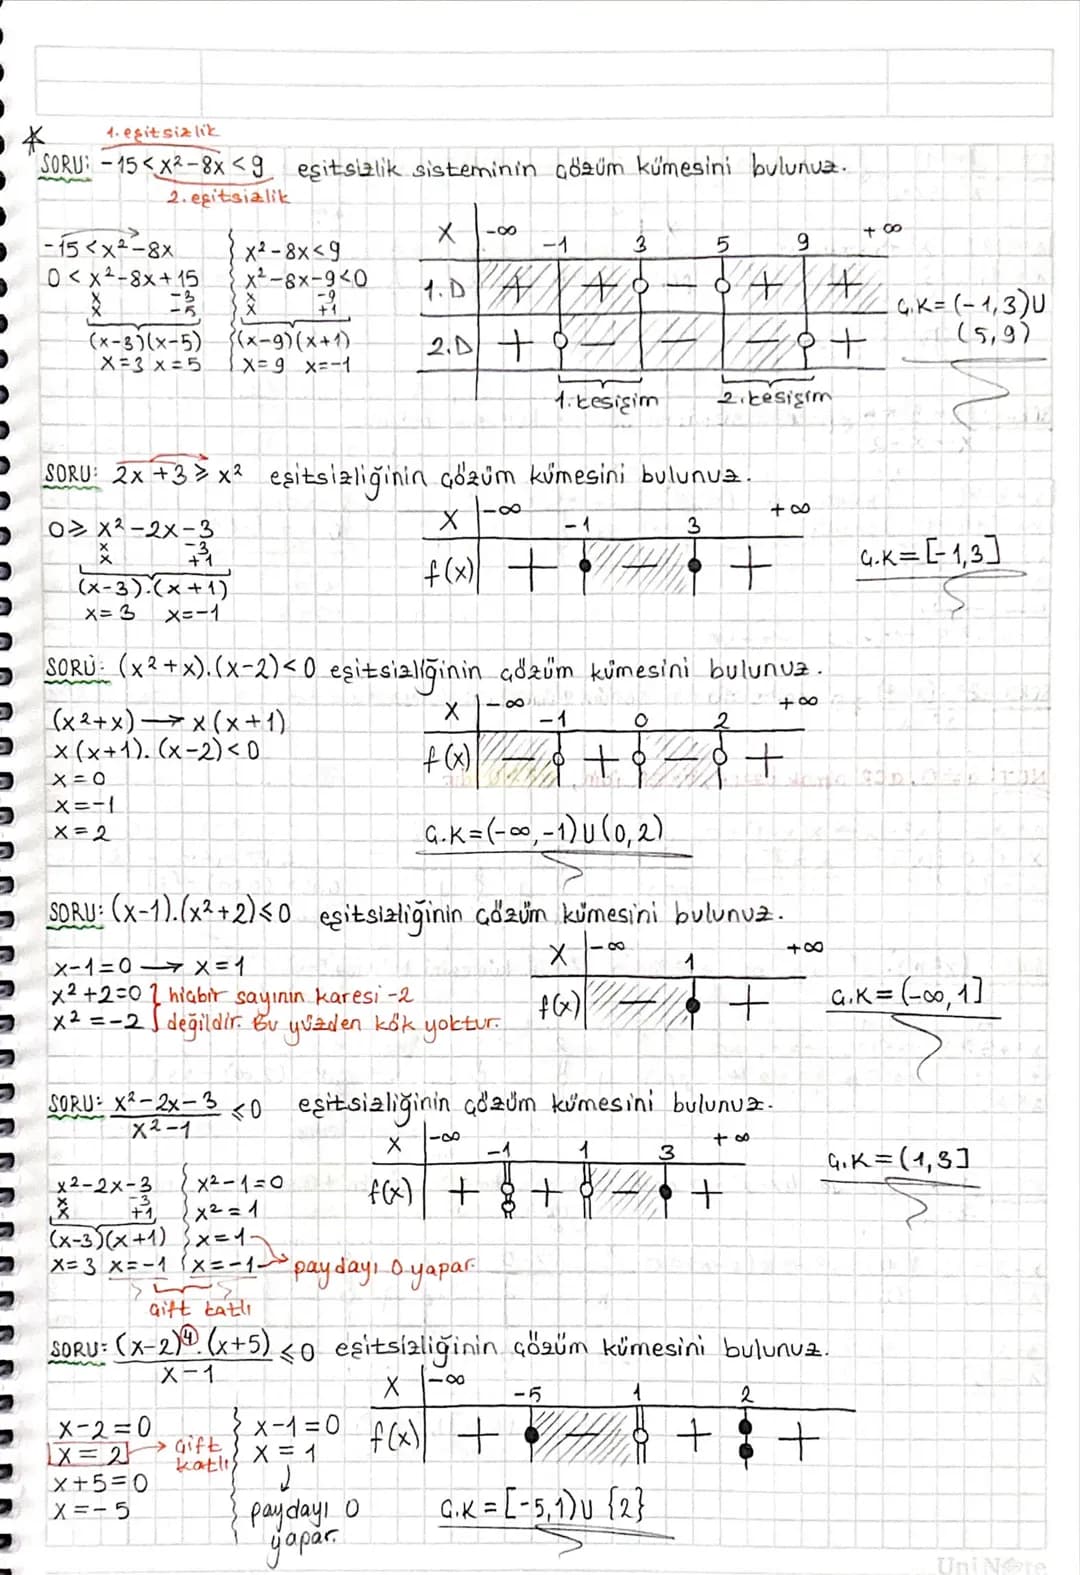 1. eşitsizlik
SORU: -15 < x²-8x < 9 eşitsizlik sisteminin çözüm kümesini bulunuz.
2. eşitsizlik
-15 < x²-8x
0 < x²-8x+15
x -3
x -5
(x-3)(x-5)
x=3 x=5
x²-8x<9
x²-8x-9<0
x -9
x +1
(x-9)(x+1)
x=9 x=-1
x -∞ -1 3 5 9 +∞
1.D + + - + +
2.D + - - - +
1.kesişim 2.kesişim
Ç.K=(-1,3)U
(5,9)
SORU: 2x+3 ≥ x² eşitsizliğinin çözüm kümesini bulunuz.
0 ≥ x²-2x-3
x -3
x +1
(x-3).(x+1)
x=3 x=-1
x -∞ -1 3 +∞
f(x) + - +
Ç.K=[-1,3]
SORU: (x²+x).(x-2)<0 eşitsizliğinin çözüm kümesini bulunuz.
(x²+x) → x(x+1)
x(x+1).(x-2)<0
x=0
x=-1
x=2
x -∞ -1 0 2 +∞
f(x) - + - +
Ç.K=(-∞,-1)U(0,2)
SORU: (x-1).(x²+2)≤0 eşitsizliğinin çözüm kümesini bulunuz.
x-1=0 → x=1
x²+2=0 } hiçbir sayının karesi -2
x²=-2 } değildir. Bu yüzden kök yoktur.
x -∞ 1 +∞
f(x) - +
Ç.K=(-∞,1]
SORU: x²-2x-3 ≤0 eşitsizliğinin çözüm kümesini bulunuz.
x²-1
x²-2x-3
x -3
x +1
(x-3)(x+1)
x=3 x=-1
x²-1=0
x²=1
x=1
x=-1 → paydayı 0 yapar.
çift katlı
x -∞ -1 1 3 +∞
f(x) + + - +
Ç.K=(1,3]
SORU: (x-2)⁴.(x+5) ≤0 eşitsizliğinin çözüm kümesini bulunuz.
x-1
x-2=0
x=2 → çift
katlı
x+5=0
x=-5
x-1=0
x=1
↓
paydayı 0
yapar.
x -∞ -5 1 2
f(x) + - + +
Ç.K=[-5,1)U{2}
UniNote